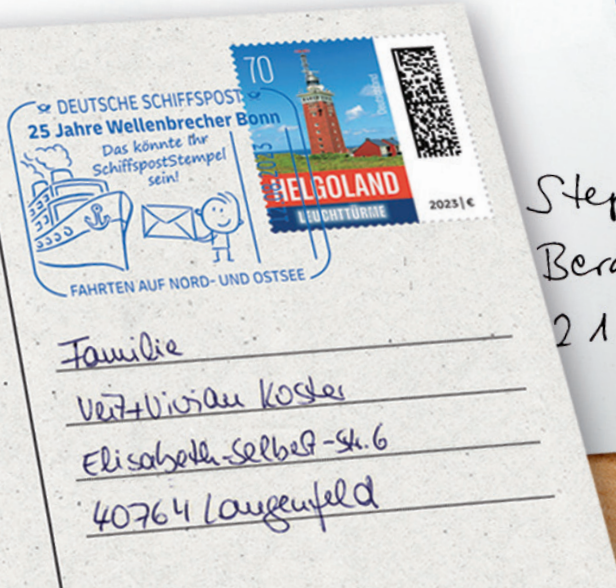 DEUTSCHE SCHIFFSPOST
25 Jahre Wellenbrecher Bonn
Das könnte Ihr
SchiffspostStempel
sein!
FAHRTEN AUF NORD- UND OSTSEE
70
Deutschland
HELGOLAND
LEUCHTTÜRME
2023 | €
Familie
Veit+Vivian Koster
Elisabeth-Selbert-Str. 6
40764 Langenfeld
Step
Berg
21